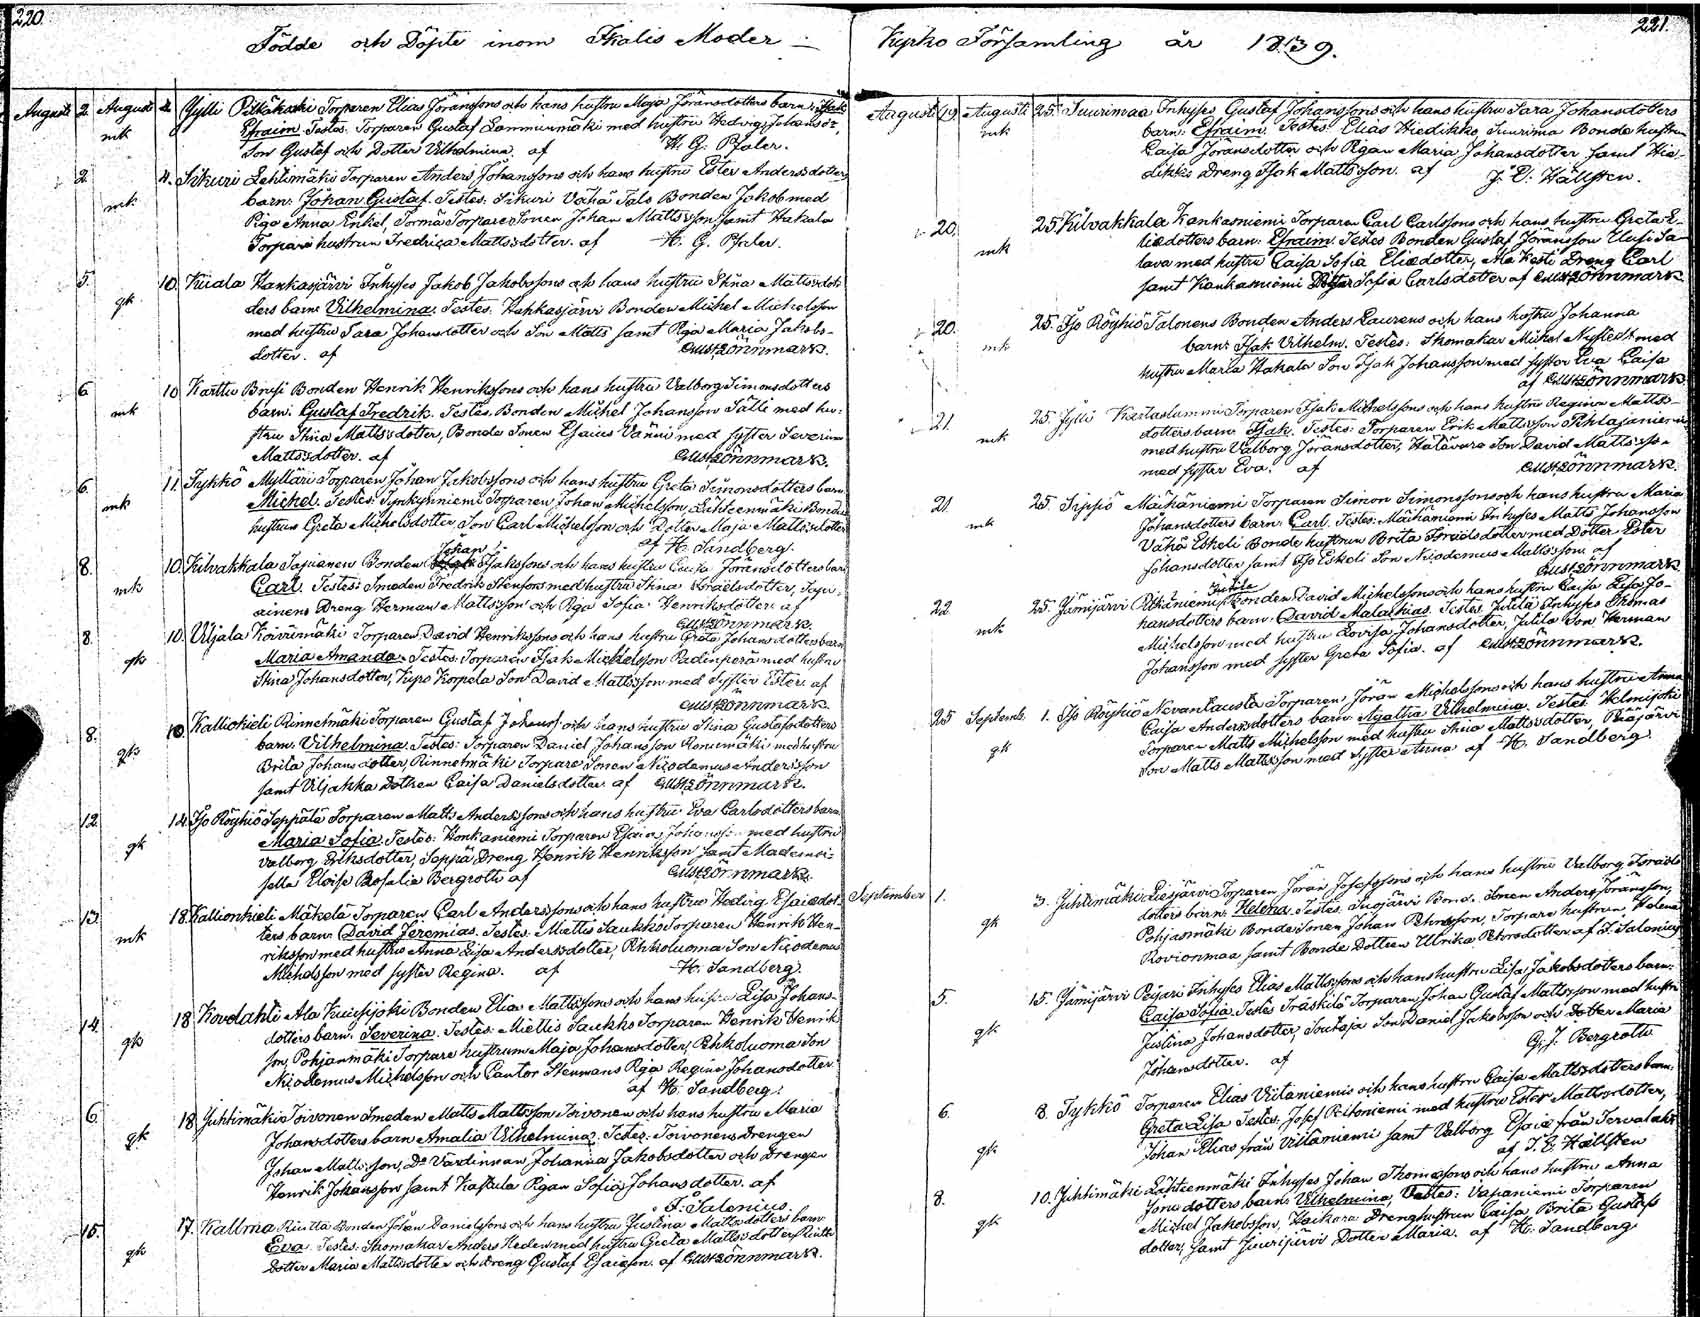 220.
Födde och Döpte inom Ikalis Moder –
Augusti 2. Augusti 4. Jylli Pitkäkoski Torparen Elias Jöranssons och hans hustru Maja Jöransdotters barn: Isak
mk Efraim. Testes: Torparen Gustaf Lamminmäki med hustru Hedvig Johansd:r
Son Gustaf och Dotter Vilhelmina. af H. G. Pfaler.
2. 4. Sikuri Lehtimäki Torparen Anders Johanssons och hans hustru Ester Andersdotters
mk barn: Johan Gustaf. Testes: Sikuri Vähä Talo Bonden Jakob med
Piga Anna Enkel, Tormä Torpare Sonen Johan Mattsson samt Hakala
Torpare hustrun Fredrica Mattsdotter. af H. G. Pfaler.
5. 10. Kuidla Kankasjärvi Inhyses Jakob Jakobssons och hans hustru Stina Mattsdot-
gk ders barn: Vilhelmina. Testes: Kahkasjärvi Bonden Michel Michelsson
med hustru Sara Johansdotter och Son Matts samt Piga Maria Jakobs-
dotter. af Gust: Lönnmark.
6. 10 Karttu Brusi Bonden Henrik Henrikssons och hans hustru Valborg Simonsdotters
mk barn: Gustaf Fredrik. Testes: Bonden Michel Johansson Sälli med hu-
stru Stina Mattsdotter, Bonde Sonen Esaias Vänni med syster Severina
Mattsdotter. af Gust: Lönnmark.
6. 11. Sykkö Mylläri Torparen Johan Jakobssons och hans hustru Greta Simonsdotters barn
mk Michel. Testes: Tynkynniemi Torparen Johan Michelsson, Lähteenmäki Bonde
hustrun Greta Michelsdotter, Son Carl Michelsson och Dotter Maja Mattsdotter
af H. Sandberg.
8. 10. Kilvakkala Sajianen Bonden Johan Isakssons och hans hustru Caisa Jöransdotters barn
mk Carl. Testes: Smeden Fredrik Stenfors med hustru Stina Israelsdotter, Saja-
ainens Dreng Herman Mattsson och Piga Sofia Henriksdotter af
Gust: Lönnmark.
8. 10. Viljala Koivumäki Torparen David Henrikssons och hans hustru Greta Johansdotters barn
gk Maria Amanda. Testes: Torparen Isak Michelsson Padinperä med hustru
Stina Johansdotter, Kipo Korpela Son David Mattsson med Syster Ester. af
Gust: Lönnmark.
8. 10 Kalliokieli Rinnetmäki Torparen Gustaf Johanss: och hans hustru Stina Gustafsdotters
gk barn: Vilhelmina. Testes: Torparen Daniel Johansson Ronumäki med hustru
Brita Johansdotter, Rinnetmäki Torpare Sonen Nicodemus Andersson
samt Viljakka Dottren Caisa Danielsdotter af Gust: Lönnmark.
12. 14 Iso Röyhiö Seppälä Torparen Matts Anderssons och hans hustru Eva Carlsdotters barn
gk Maria Sofia. Testes: Honkaniemi Torparen Esaias Johansson med hustru
Valborg Eriksdotter, Seppä Dreng Henrik Henriksson samt Mademoi-
selle Eloise Rosalie Bergroth af Gust: Lönnmark.
13. 18. Kallionkieli Mäkelä Torparen Carl Anderssons och hans hustru Hedvig Esaiedot-
mk ters barn: David Jeremias. Testes: Mattis Saukko Torparen Henrik Hen-
riksson med hustru Anna Lisa Andersdotter, Pehkoluoma Son Nicodemus
Michelsson med syster Regina. af H. Sandberg.
14. 18. Kovolahti Ala Kuusijoki Bonden Elias Mattssons och hans hustru Lisa Johans-
gk dotters barn: Severina. Testes: Miettis Saukko Torparen Henrik Henrik
son, Pohjanmäki Torpare hustrun Maja Johansdotter, Pehkoluoma Son
Nicodemus Michelsson och Cantor Stenmans Piga Regina Johansdotter
af H. Sandberg.
6. 18. Juhtimäki Toivonen Smeden Matts Mattsson Toivonen och hans hustru Maria
gk Johansdotters barn Amalia Vilhelmina. Testes: Toivonens Drengen
Johan Mattsson, Do Värdinnan Johanna Jakobsdotter och Drengen
Henrik Johansson samt Kastula Pigan Sofia Johansdotter. af
F: Salonius.
15. 17. Kallma Riutta Bonden Johan Danielssons och hans hustru Justina Mattsdotters barn
gk Eva. Testes: Skomakar Anders Heden med hustru Greta Mattsdotter, Riutta
Dotter Maria Mattsdotter och Dreng Gustaf Esaieson. af Gust: Lönnmark.
221.
Kyrko Församling år 1839.
Augusti 19. Augusti 25. Suurimaa Inhyses Gustaf Johanssons och hans hustru Sara Johansdotters
mk barn: Efraim. Testes: Elias Hiedikko, Suurima Bonde hustrun
Caisa Jöransdotter och Pigan Maria Johansdotter samt Hie-
dikkö Dreng Isak Mattsson. af J. E: Hällsten.
20. 25. Kilvakkala Kankasniemi Torparen Carl Carlssons och hans hustru Greta E-
mk liædotters barn: Efraim. Testes Bonden Gustaf Jöransson Uusi Sa-
lava med hustru Caisa Sofia Eliædotter, Ala Kesti Dreng Carl
samt Kankasniemi Dotter Sofia Carlsdotter af Gust: Lönnmark
20. 25. Iso Röyhiö Talonens Bonden Anders Laurens och hans hustru Johanna
mk barn: Isak Vilhelm. Testes: Skomakar Michel Nystedt med
hustru Maria Hakala Son Isak Johansson med syster Eva Caisa
af Gust: Lönnmark.
21. 25. Jylli Kaitaslammi Torparen Isak Michelssons och hans hustru Regina Matts-
mk dotters barn: Isak. Testes: Torparen Erik Mattsson Pihlajaniemi
med hustru Valborg Jöransdotter, Hatavara Son David Mattsso-
med syster Eva. af Gust: Lönnmark.
21. 25. Sippö Maikäniemi Torparen Simon Simonssons och hans hustru Maria
mk Johansdotters barn: Carl. Testes: Maikäniemi Inhyses Matts Johansson
Vähä Eskeli Bonde hustrun Brita Israelsdotter med Dotter Ester
Johansdotter samt Iso Eskeli Son Nicodemus Mattsson af
Gust: Lönnmark
22. 25. Jämijärvi Pitkäniemi Jutila Bonden David Michelssons och hans hustru Caisa Lisa Jo-
mk hansdotters barn: David Malachias. Testes: Jutila Inhyses Thomas
Michelsson med hustru Lovisa Johansdotter, Jutila Son Herman
Johansson med syster Greta Sofia. af Gust: Lönnmark.
25 Septemb. 1. Iso Röyhiö Nevanlausta Torparen Jöran Michelssons och hans hustru Anna
gk Caisa Andersdotters barn: Agatha Vilhelmina. Testes: Helmijoki
Torparen Matts Michelsson med hustru Stina Mattsdotter, Raajärvi
Son Matts Mattsson med syster Anna af H. Sandberg.
September 1. 3. Juhtimäki Liesjärvi Torparen Jöran Josefssons och hans hustru Valborg Israels
gk dotters barn: Helena. Testes: Suojärvi Bond. Sonen Anders Jöransson,
Pohjasmäki Bonde Sonen Johan Petersson, Torpare hustrun Helena
Rovionmaa samt Bonde Dottren Ulrika Petersdotter. af F. Salonius
5. 15. Jämijärvi Peijari Inhyses Elias Mattssons och hans hustru Lisa Jakobsdotters barn:
gk Caisa Sofia. Testes Träskilä Torparen Johan Gustaf Mattsson med hustru
Justina Johansdotter, Soutaja Son Daniel Jakobsson och Dotter Maria
Johansdotter. af G. J. Bergroth
6. 8. Sykkö Torparen Elias Viitaniemis och hans hustru Caisa Mattsdotters barn:
gk Greta Lisa. Testes: Josef Ritoniemi med hustru Ester Mattsdotter,
Johan Elias från Viitäniemi samt Valborg Esaiæ från Tervalahti
af J. E. Hällsten
8. 10. Juhtimäki Lähteenmäki Inhyses Johan Thomassons och hans hustru Anna
gk Jonsdotters barn: Vilhelmina. Testes: Vapaniemi Torparen
Michel Jakobsson, Haukara Drenghustrun Caisa Brita Gustafs
dotter, samt Juurijärvi Dotter Maria. af H. Sandberg